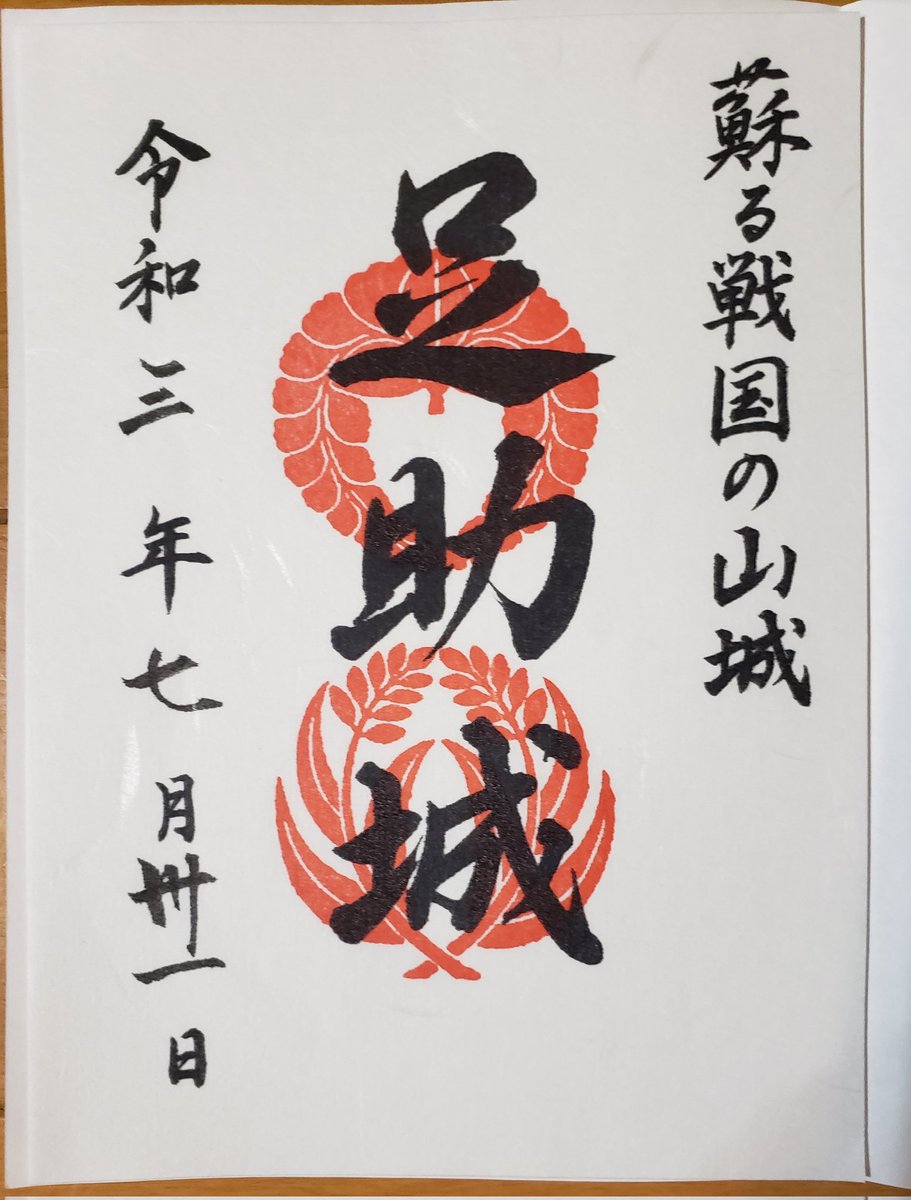 蘇る戦国の山城
足助城
令和三年七月卅一日